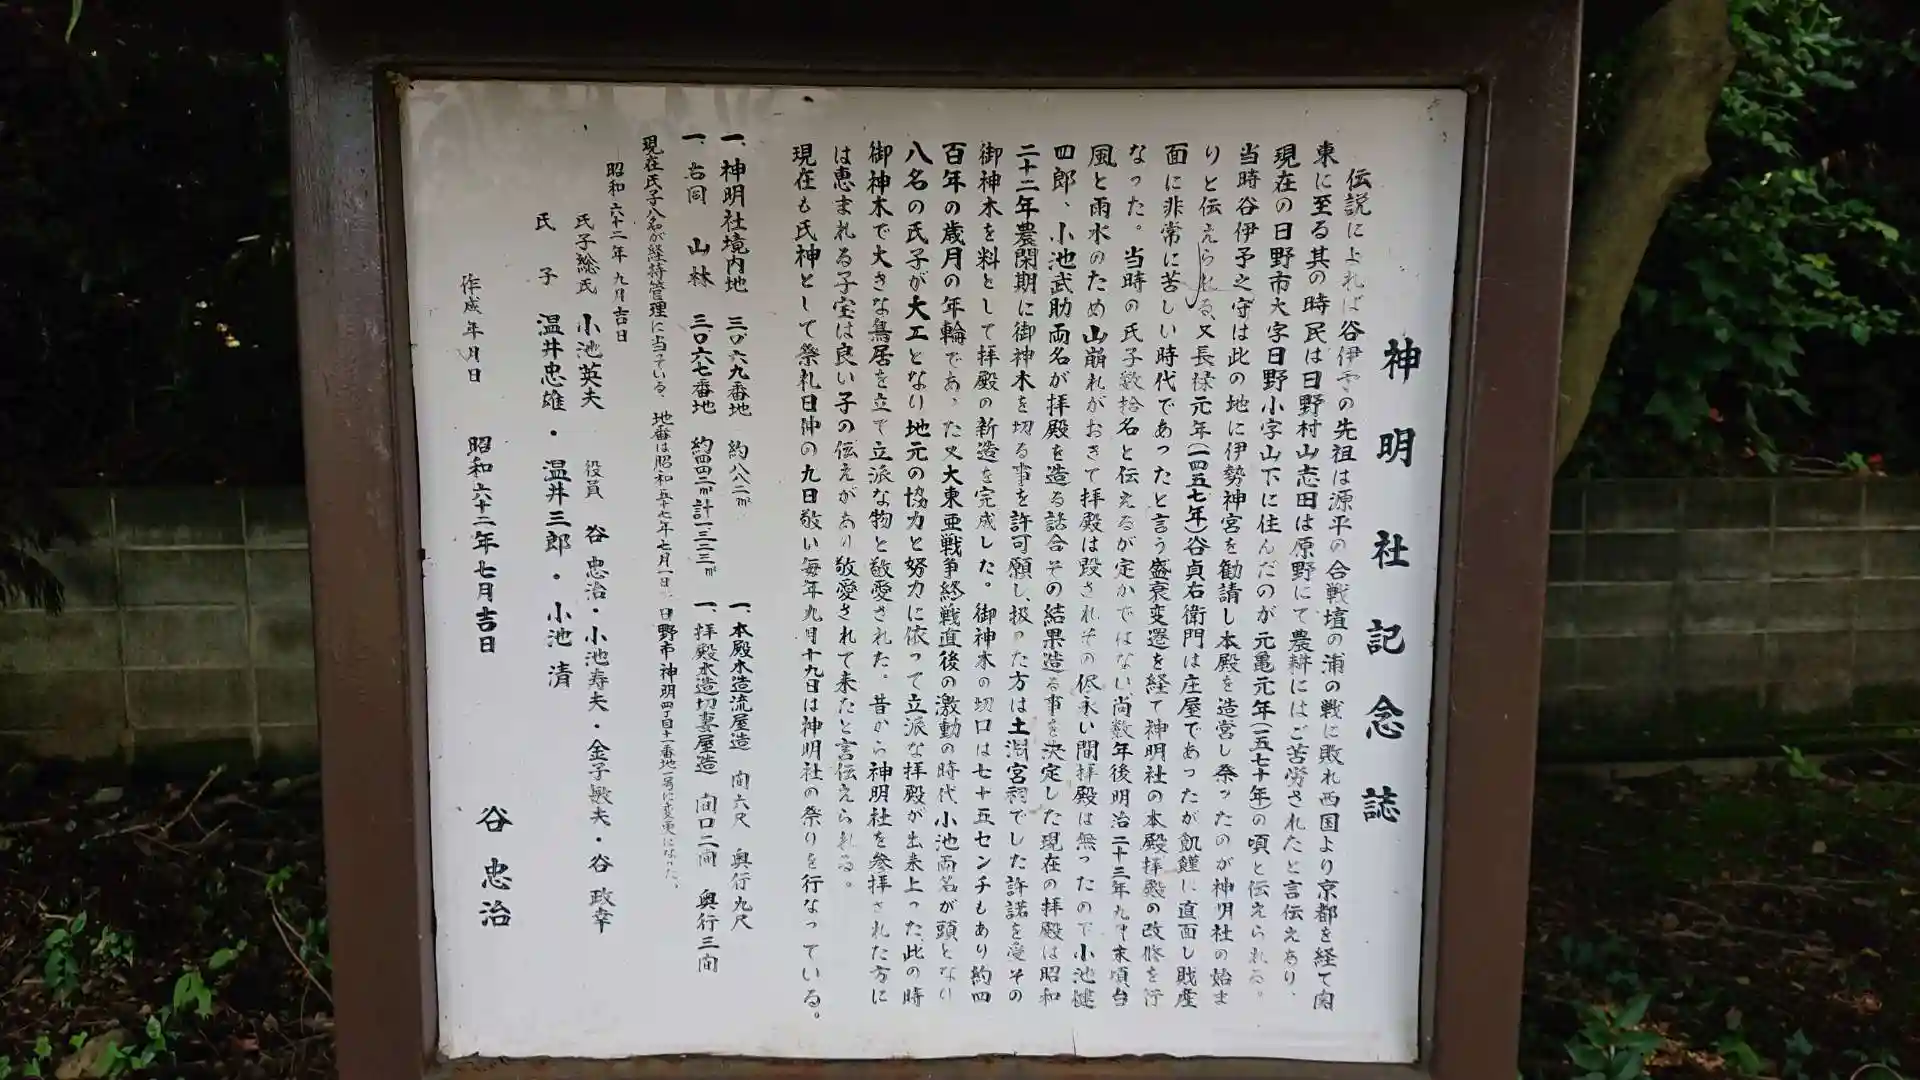 神明社記念誌
伝説によれば谷伊予の先祖は源平の合戦壇の浦の戦に敗れ西国より京都を経て関
東に至る其の時民は日野村山志田は原野にて農耕にはご苦労されたと言伝えあり、
現在の日野市大字日野小字山下に住んだのが元亀元年(一五七十年)の頃と伝えられる。
当時谷伊予之守は此の地に伊勢神宮を勧請し本殿を造営し祭ったのが神明社の始ま
りと伝えられる、又長禄元年(一四五七年)谷貞右衛門は庄屋であったが飢饉に直面し財産
面に非常に苦しい時代であったと言う盛衰変遷を経て神明社の本殿拝殿の改修を行
なった。当時の氏子数拾名と伝えるが定かではない、尚数年後明治二十三年九月末頃台
風と雨水のため山崩れがおきて拝殿は毀されその侭永い間拝殿は無ったので小池健
四郎、小池武助両名が拝殿を造る話合その結果造る事を決定した現在の拝殿は昭和
二十二年農閑期に御神木を切る事を許可願し、扱った方は土渕宮祠でした許諾を受その
御神木を料として拝殿の新造を完成した。御神木の切口は七十五センチもあり約四
百年の歳月の年輪であった又大東亜戦争終戦直後の激動の時代小池両名が頭となり
八名の氏子が大工となり地元の協力と努力に依って立派な拝殿が出来上った此の時
御神木で大きな鳥居を立て立派な物と敬愛された。昔から神明社を参拝された方に
は恵まれる子宝は良い子の伝えがあり敬愛されて来たと言伝えられる。
現在も氏神として祭礼日仲の九日敬い毎年九月十九日は神明社の祭りを行なっている。
一、神明社境内地 三〇六九番地 約八八二㎡ 一、本殿木造流屋造 間六尺 奥行九尺
一、合同 山林 三〇六七番地 約四四二㎡計一三二三㎡ 一、拝殿木造切妻屋造 間口二間 奥行三間
現在氏子八名が経持管理に当ている、地番は昭和五十七年七月一日、日野市神明四丁目十一番地一号に変更になった、
昭和六十二年九月吉日
氏子総氏 小池英夫 役員 谷忠治・小池寿夫・金子敏夫・谷政幸
氏子 温井忠雄・温井三郎・小池清
作成年月日 昭和六十二年七月吉日 谷忠治